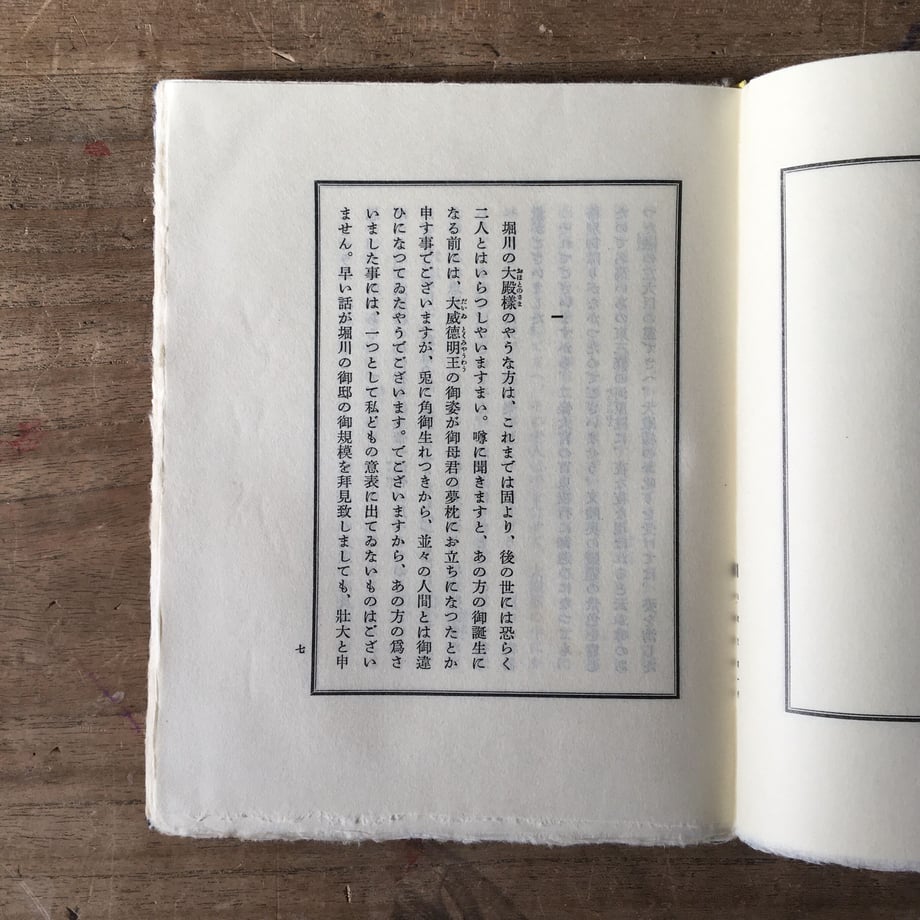 一
堀川の大殿樣のやうな方は、これまでは固より、後の世には恐らく
おほとのさま
二人とはいらつしやいますまい。噂に聞きますと、あの方の御誕生に
なる前には、大威德明王の御姿が御母君の夢枕にお立ちになつたとか
だいゐとくみやうわう
申す事でございますが、兎に角御生れつきから、並々の人間とは御違
ひになつてゐたやうでございます。でございますから、あの方の爲さ
いました事には、一つとして私どもの意表に出てゐないものはござい
ません。早い話が堀川の御邸の御規模を拜見致しましても、壯大と申
七